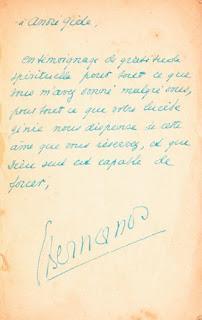 à André Gide,
en témoignage de gratitude
spirituelle pour tout ce que
vous m'avez donné malgré vous,
pour tout ce que votre lucide
génie nous dispense de cette
âme que vous réservez, et que
Dieu seul est capable de
forcer,
GBernanos